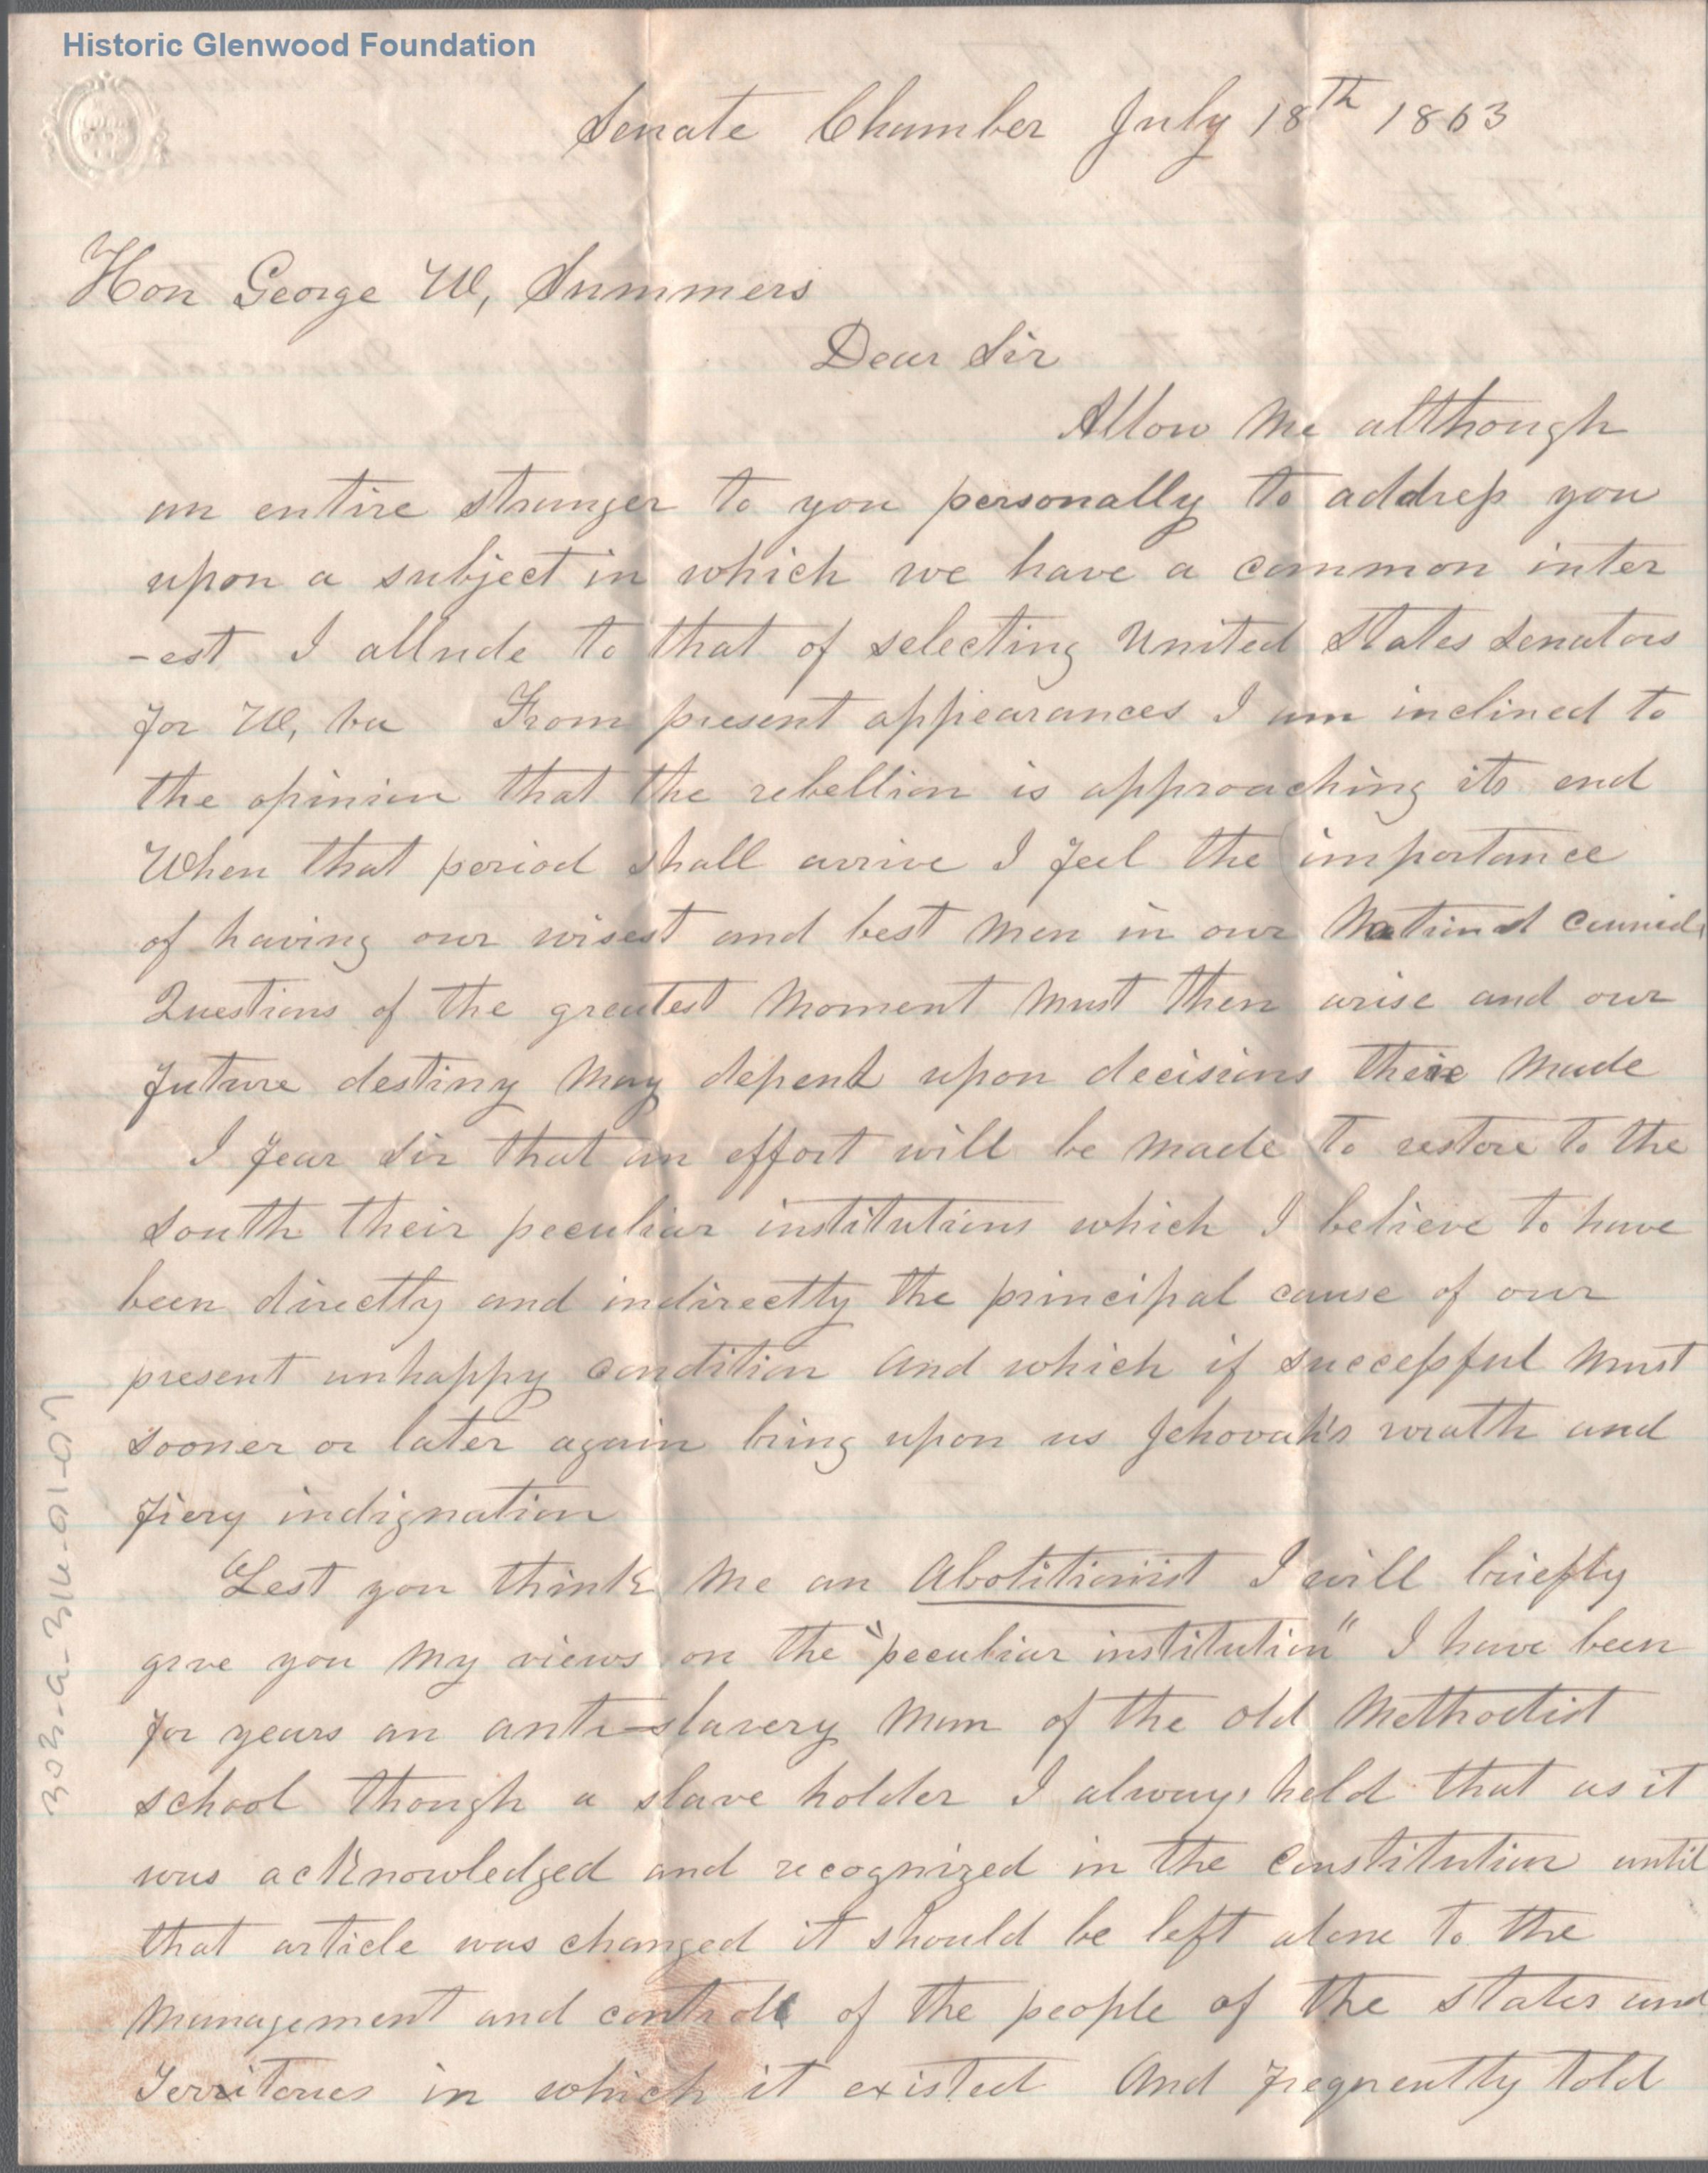 Historic Glenwood Foundation
Senate Chamber July 18th 1863
Hon George W, Summers
Dear Sir
Allow me although
an entire stranger to you personally to address you
upon a subject in which we have a common inter
-est I allude to that of selecting United States Senators
for W, Va From present appearances I am inclined to
the opinion that the rebellion is approaching its end
When that period shall arrive I feel the importance
of having our wisest and best men in our National
Questions of the greatest moment must then arise and our
future destiny may depend upon decisions there made
I fear Sir that an effort will be made to restore to the
South their peculiar institutions which I believe to have
been directly and indirectly the principal cause of our
present unhappy condition and which if successful must
sooner or later again bring upon us Jehovah's wrath and
fiery indignation
Lest you think me an Abolitionist I will briefly
give you my views on the "peculiar institution" I have been
for years an anti-slavery man of the old Methodist
school though a slave holder I always held that as it
was acknowledged and recognized in the constitution until
that article was changed it should be left alone to the
management and controll of the people of the states and
Territories in which it existed And frequently told